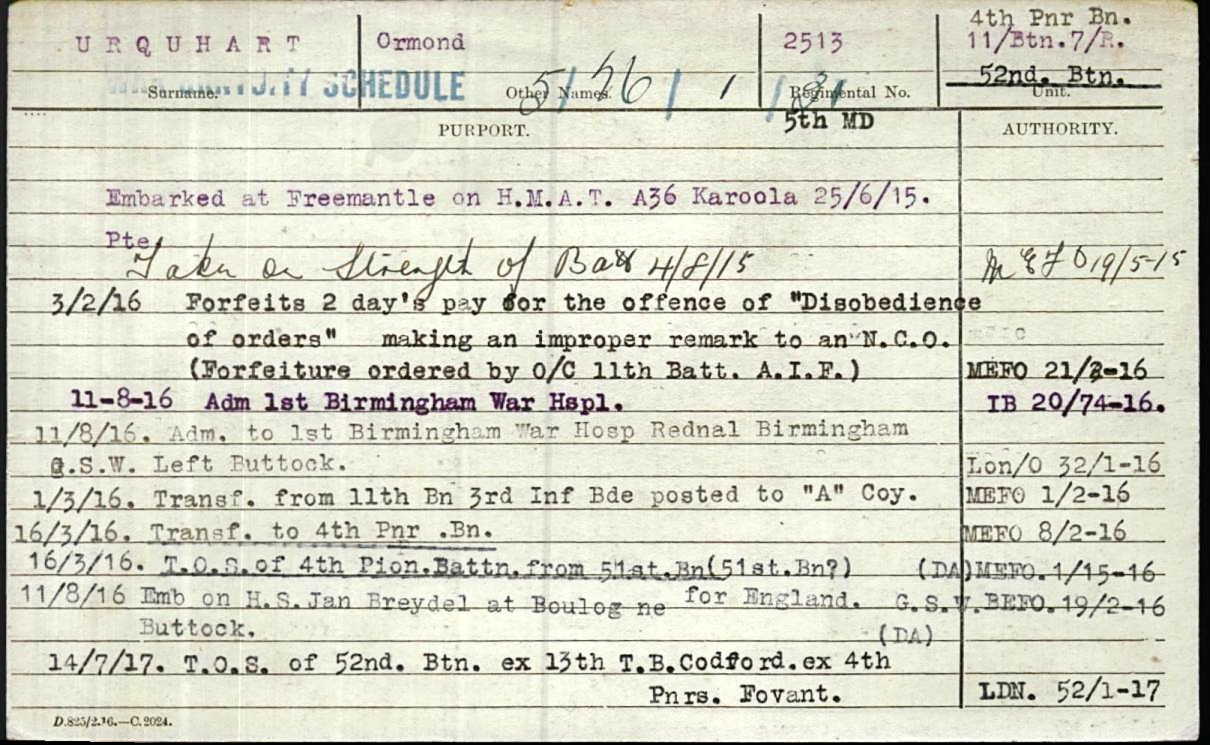 4th Pnr Bn.
URQUHART Ormond 2513 11/Btn.7/R.
52nd. Btn.
SCHEDULE
Surname. Other Names. Regimental No. Unit.
5th MD
PURPORT. AUTHORITY.
Embarked at Freemantle on H.M.A.T. A36 Karoola 25/6/15.
Pte
Taken on Strength of Batt 4/8/15 19/5-15
3/2/16 Forfeits 2 day's pay for the offence of "Disobedience
of orders" making an improper remark to an N.C.O.
(Forfeiture ordered by O/C 11th Batt. A.I.F.) MEFO 21/2-16
11-8-16 Adm 1st Birmingham War Hspl. IB 20/74-16.
11/8/16. Adm. to 1st Birmingham War Hosp Rednal Birmingham
G.S.W. Left Buttock. Lon/O 32/1-16
1/3/16. Transf. from 11th Bn 3rd Inf Bde posted to "A" Coy. MEFO 1/2-16
16/3/16. Transf. to 4th Pnr .Bn. MEFO 8/2-16
16/3/16. T.O.S.of 4th Pion.Battn.from 51st.Bn(51st.Bn?) (DA)MEFO.1/15-16
11/8/16 Emb on H.S.Jan Breydel at Boulog ne for England. G.S.W.BEFO.19/2-16
Buttock. (DA)
14/7/17. T.O.S. of 52nd. Btn. ex 13th T.B.Codford.ex 4th
Pnrs. Fovant. LDN. 52/1-17
D.825/2.16.—C.2024.